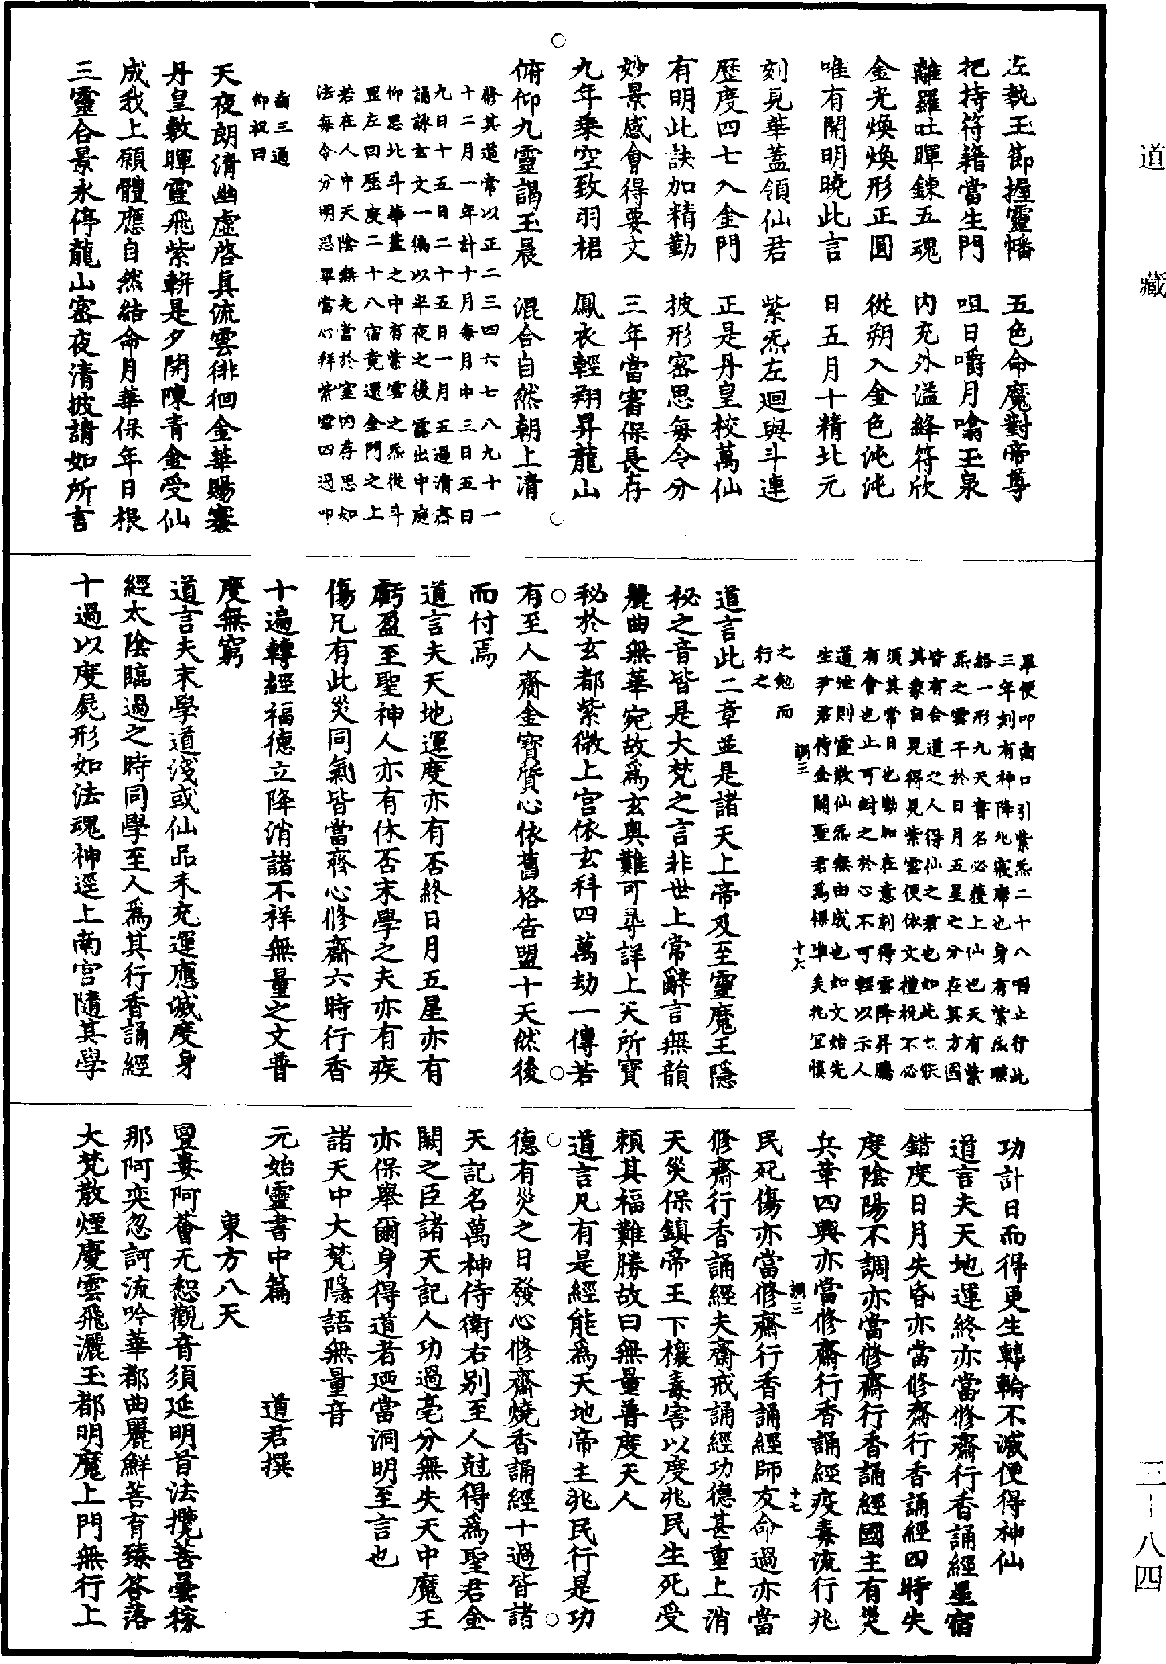 道藏
三-八四
左執玉節握靈幡　五色命魔對帝尊
把持符籍當生門　咀日嚼月噏玉泉
離羅吐暉鍊五魂　內充外溢絳符欣
金光煥煥形正圓　從朔入金色沌沌
唯有開明曉此言　日五月十精北元
刻見華蓋領仙君　紫炁左迴與斗連
歷度四七入金門　正是丹皇校萬仙
有明此訣加精勤　披形密思每令分
妙景感會得要文　三年當審保長存
九年乘空致羽裙　鳳衣輕翔昇龍山
俯仰九靈謁玉晨　混合自然朝上清
修其道常以正二三四六七八九十一
十二月一年計十月每月中三日五日
九日十五日二十五日一月五過清齋
誦詠玄文一徧以半夜之後露出中庭
仰思北斗華蓋之中有紫雲之炁從斗
星左回歷度二十八宿竟還金門之上
若在人中天陰無光當於室內存思如
法每令分明思畢當心拜紫雲四過叩
齒三通
仰祝曰
天夜朗清幽虛啓真流雲徘徊金華賜褰
丹皇敷暉靈飛紫軿是夕開陳青金受仙
成我上願體應自然結命月華保年日根
三靈合景永停龍山密夜清披請如所言
畢便叩齒口引紫炁二十八咽止行此
三年刻有神降北寢席也身有紫炁曖
絡一形九天書名必獲上仙也天有紫
炁之雲干於日月五星之分在其方國
皆有合道之人得仙之君也如此
其象自見得見紫雲便依文禮祝不必
須其常日也勤加在意刻得雲降昇騰
有會也止可封之於心不可輕以示人
道泄則靈散仙炁無由成也如文始先
生尹君侍金闕聖君爲保
之勉而
行之
道言此二章並是諸天上帝及至靈魔王隱
秘之音皆是大梵之言非世上常辭言無韻
麗曲無華宛故爲玄奧難可尋詳上天所寶
秘於玄都紫微上宮依玄科四萬劫一傳若
有至人齎金寶質心依舊格告盟十天然後
而付焉
道言夫天地運度亦有否終日月五星亦有
虧盈至聖神人亦有休否末學之夫亦有疾
傷凡有此災同氣皆當齊心修齋六時行香
十遍轉經福德立降消諸不祥無量之文普
度無窮
道言夫末學道淺或仙品未充運應滅度身
經太陰臨過之時同學至人爲其行香誦經
十過以度屍形如法魂神逕上南宮隨其學
功計日而得更生轉輪不滅便得神仙
道言夫天地運終亦當修齋行香誦經星宿
錯度日月失昏亦當修齋行香誦經四時失
度陰陽不調亦當修齋行香誦經國主有災
兵革四興亦當修齋行香誦經疫毒流行兆
民死傷亦當修齋行香誦經師友命過亦當
修齋行香誦經夫齋戒誦經功德甚重上消
天災保鎮帝王下禳毒害以度兆民生死受
賴其福難勝故曰無量普度天人
道言凡有是經能爲天地帝主兆民行是功
德有災之日發心修齋燒香誦經十過皆諸
天記名萬神侍衛右別至人尅得爲聖君金
闕之臣諸天記人功過毫分無失天中魔王
亦保舉爾身得道者迺當洞明至言也
諸天中大梵隱語無量音
元始靈書中篇　道君撰
東方八天
亶婁阿薈无惒觀音須延明首法攬菩曇稼
那阿奕忽訶流吟華都曲麗鮮菩育臻答落
大梵散煙慶雲飛灑玉都明魔上門無行上